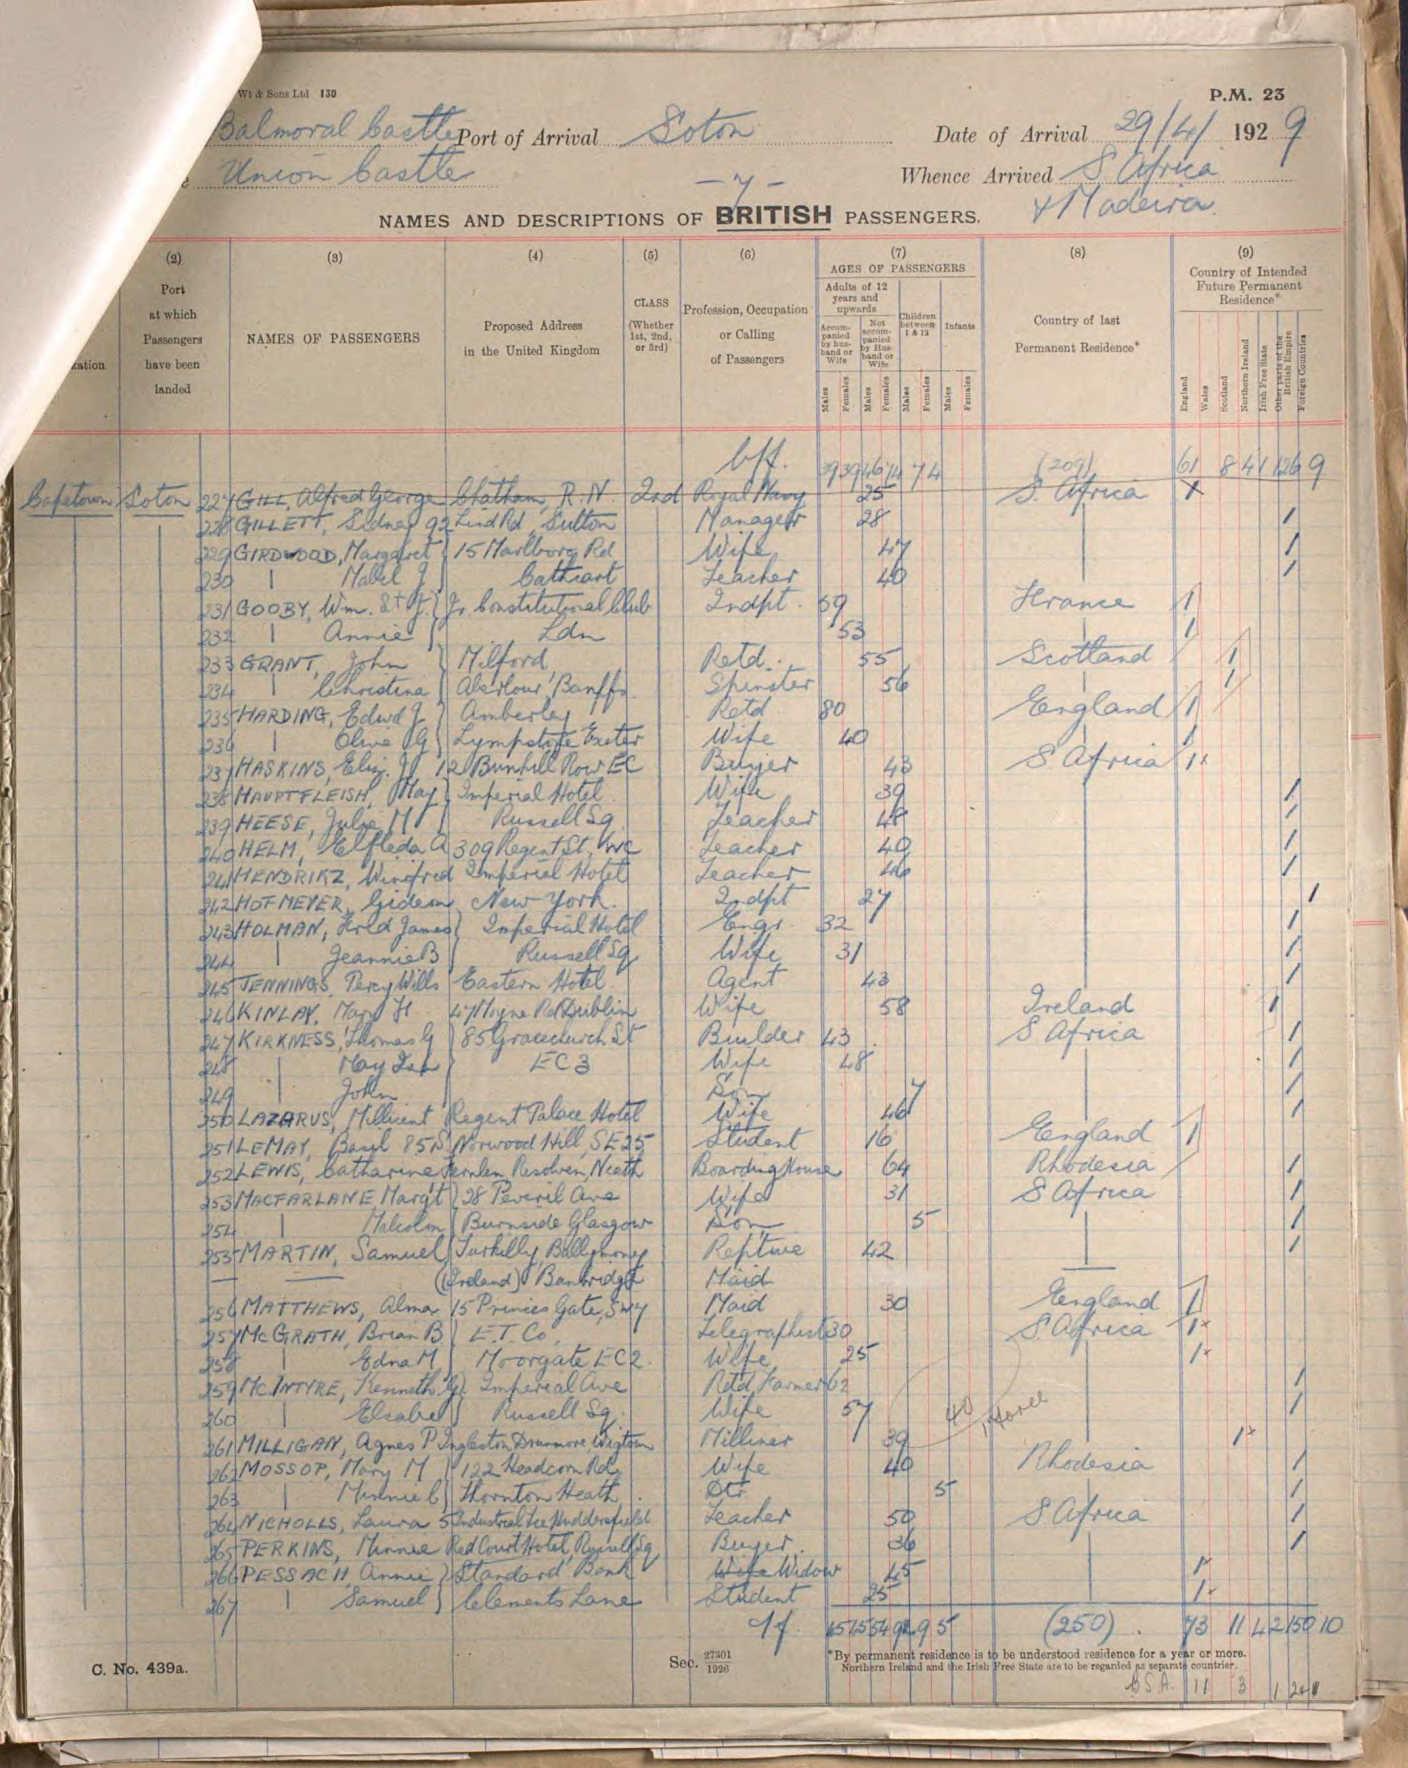 Wt & Sons Ltd 130
P.M. 23
Balmoral Castle Port of Arrival Soton Date of Arrival 29/4/ 1929
Union Castle Whence Arrived S Africa
-7- & Madeira
NAMES AND DESCRIPTIONS OF BRITISH PASSENGERS.
(2) (3) (4) (5) (6) (7) (8) (9)
Port at which Passengers have been landed
NAMES OF PASSENGERS
Proposed Address in the United Kingdom
CLASS (Whether 1st, 2nd, or 3rd)
Profession, Occupation or Calling of Passengers
AGES OF PASSENGERS
Adults of 12 years and upwards
Accompanied by husband or Wife
Not accompanied by Husband or Wife
Children between 1 & 12
Infants
Males Females Males Females Males Females Males Females
Country of last Permanent Residence*
Country of Intended Future Permanent Residence*
England Wales Scotland Northern Ireland Irish Free State Other parts of the British Empire Foreign Countries
b/f. 39 39 46 74 7 4 (209) 61 8 4 1 126 9
Capetown Soton 227 GILL, Alfred George Chatham, R.N. 2nd Royal Navy 25 S. Africa
228 GILLETT, Sidney 92 Lind Rd, Sutton Manager 28 1
229 GIRDWOOD, Margaret 15 Marlboro Rd Wife 47 1
230 Mabel J Cathcart Teacher 40 1
231 GOOBY, Wm. St J. Jr. Constitutional Club Indpt. 59 France 1
232 Annie Ldn 53 1
233 GRANT, John Milford Retd. 55 Scotland 1
234 Christina Aberlour, Banffs Spinster 56 1
235 HARDING, Edwd J Amberley Retd 80 England 1
236 Olive G Lympstone Exeter Wife 40 1
237 HASKINS, Eliz. J 12 Bunhill Row EC Buyer 43 S Africa 1
238 HAUPTFLEISH, May Imperial Hotel Wife 39 1
239 HEESE, Julie M Russell Sq. Teacher 48 1
240 HELM, Elfleda A 309 Regent St, WC Teacher 40 1
241 HENDRIKZ, Winifred Imperial Hotel Teacher 46 1
242 HOFMEYER, Gideon New York. Indpt 27 1
243 HOLMAN, Fred James Imperial Hotel Engr. 32 1
244 Jeannie B Russell Sq Wife 31 1
245 JENNINGS, Percy Wills Eastern Hotel Agent 43 1
246 KINLAY, Mary H 47 Moyne Rd Dublin Wife 58 Ireland 1
247 KIRKNESS, Thomas G 85 Gracechurch St Builder 43 S Africa 1
248 May EC3 Wife 48 1
249 John Son 7 1
250 LAZARUS, Millicent Regent Palace Hotel Wife 46 1
251 LEMAY, Basil 85 S Norwood Hill, SE25 Student 16 England 1
252 LEWIS, Catharine Resolven, Neath Boarding House 64 Rhodesia 1
253 MACFARLANE Margt 28 Peveril Ave Wife 31 S Africa 1
254 Malcolm Burnside Glasgow Son 5 1
255 MARTIN, Samuel Ballymoney 42 1
(Ireland) Banbridge Maid
256 MATTHEWS, Alma 15 Princes Gate, SW7 Maid 30 England 1
257 McGRATH, Brian B E.T. Co. Telegraphist 30 S. Africa 1
258 Edna M Moorgate EC2. Wife 25 1
259 McINTYRE, Kenneth G Imperial Ave Retd Farmer 62 1
260 Elsabe Russell Sq. Wife 57 1
261 MILLIGAN, Agnes P Ingleston Drummore Wigtown Milliner 39 1
262 MOSSOP, Mary M 122 Headcorn Rd Wife 40 Rhodesia 1
263 Minnie C Thornton Heath Dtr 5 1
264 NICHOLLS, Laura 5 Industrial Tce Huddersfield Teacher 50 S Africa 1
265 PERKINS, Minnie Red Court Hotel, Russell Sq Buyer. 36 1
266 PESSACH, Annie Standard Bank Wife Widow 45 1
267 Samuel Clements Lane Student 25 1
c/f. 45 54 9 5 (250). 73 11 4 2 150 10
C. No. 439a.
Sec. 27301/1926
*By permanent residence is to be understood residence for a year or more.
Northern Ireland and the Irish Free State are to be regarded as separate countries.
B.S.A. 11 3 1